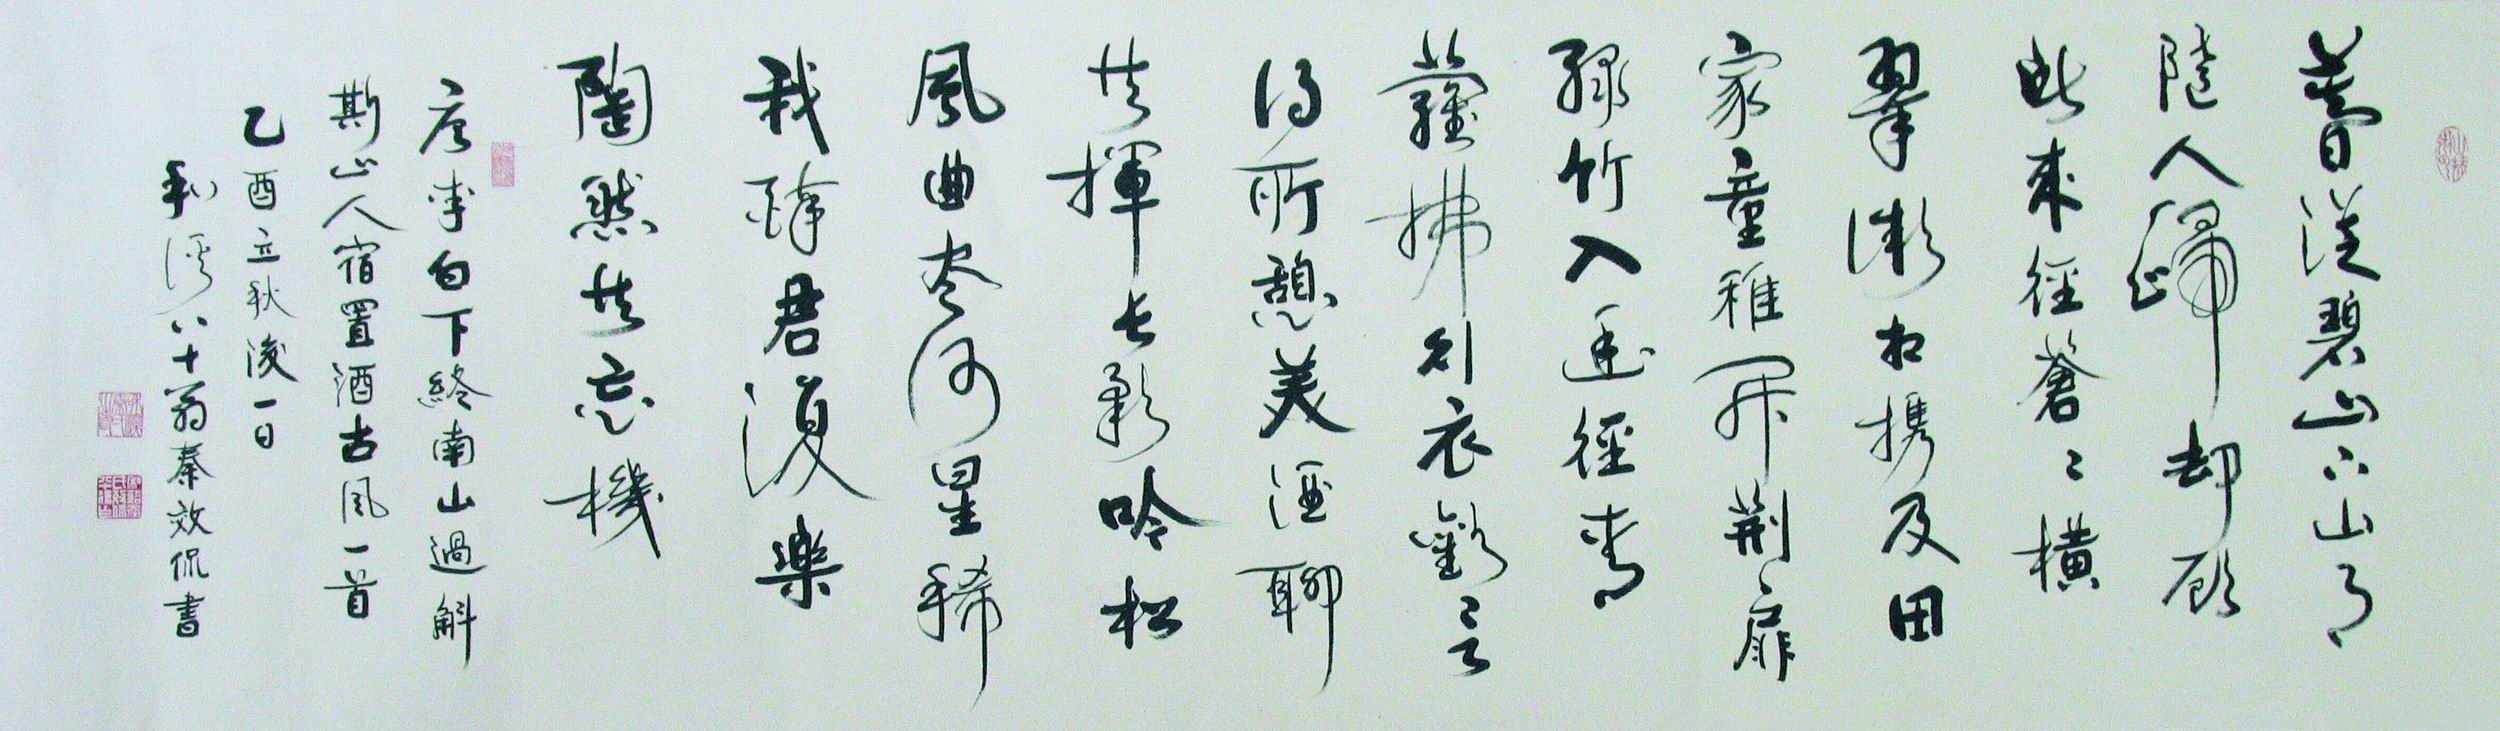 暮從碧山下山月
隨人歸却顧
所來徑蒼〻橫
翠微相携及田
家童稚開荆扉
綠竹入幽徑青
蘿拂行衣歡言
得所憩美酒聊
共揮長歌吟松
風曲盡河星稀
我醉君復樂
陶然共忘機
唐李白下終南山過斛
斯山人宿置酒古風一首
乙酉立秋後一日
八十翁秦效侃書